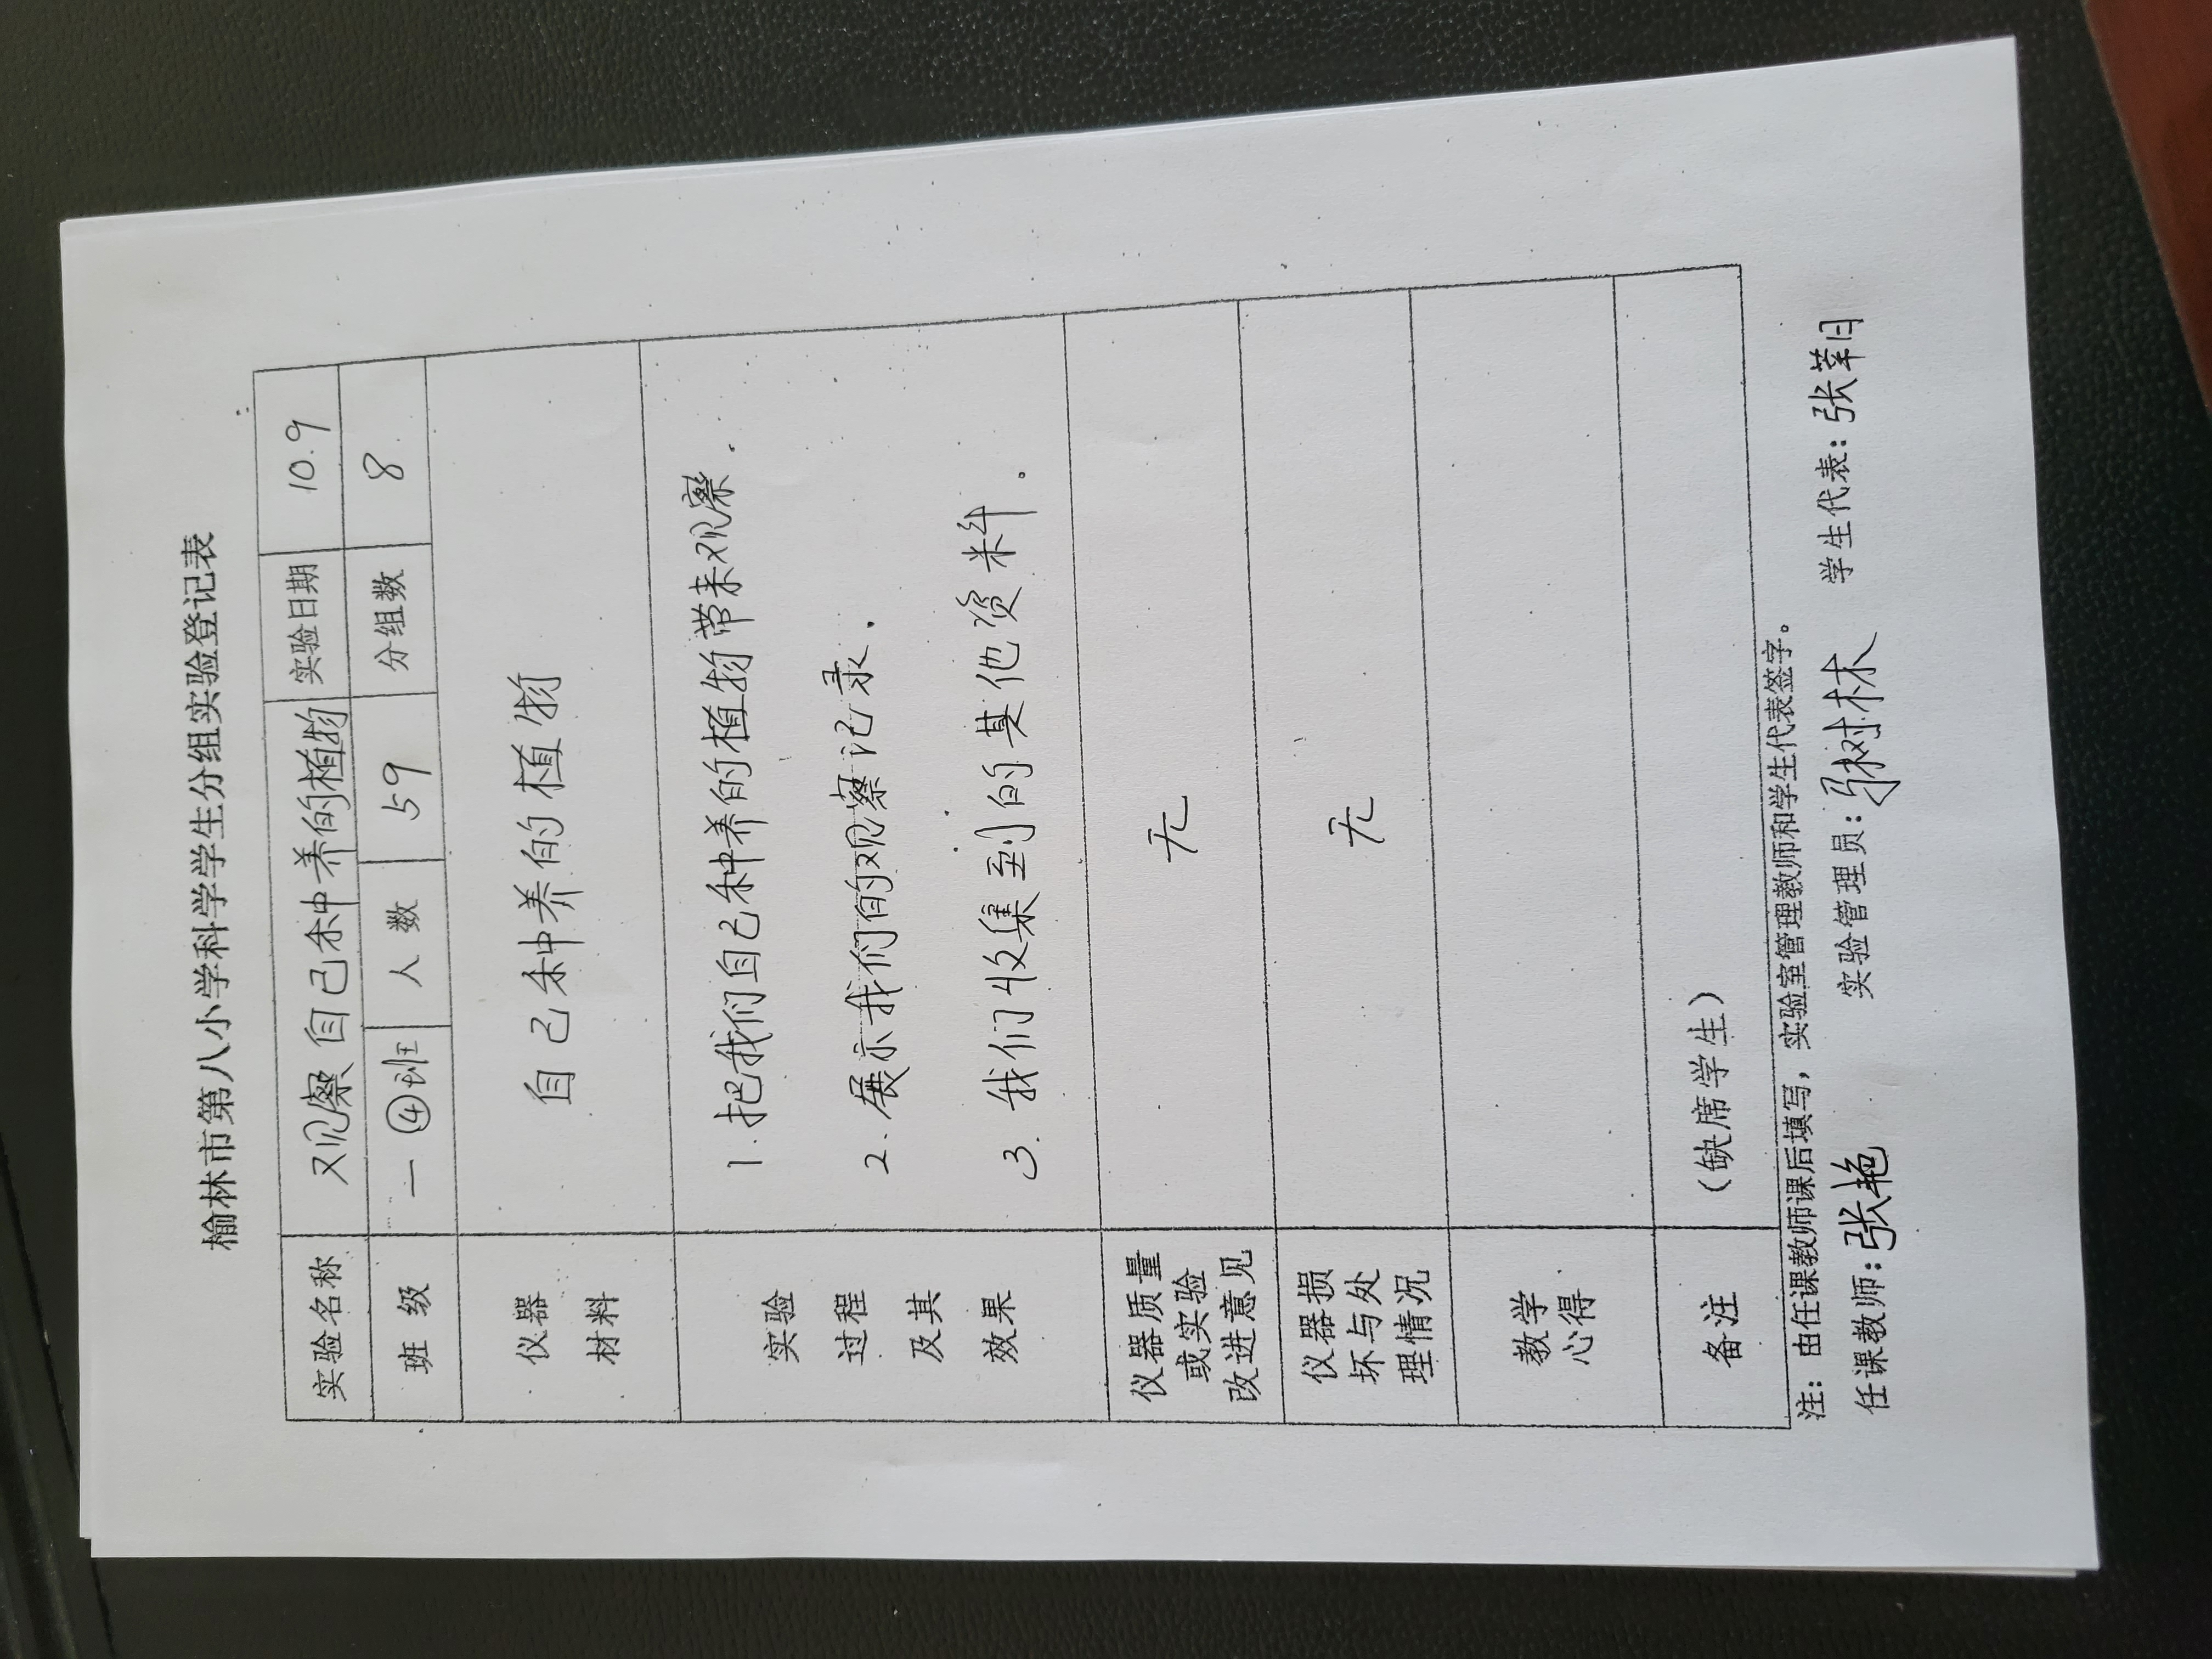 榆林市第八小学科学学生分组实验登记表
实验名称 观察自己种养的植物 实验日期 10.9
班 级 一④班 人 数 59 分组数 8
仪器
材料
自己种养的植物
实验
过程
及其
效果
1.把我们自己种养的植物带来观察.
2.展示我们的观察记录.
3.我们收集到的其他资料.
仪器质量
或实验
改进意见
无
仪器损
坏与处
理情况
无
教学
心得
备注 (缺席学生)
注：由任课教师课后填写，实验室管理教师和学生代表签字。
任课教师：张艳 实验管理员：张树林 学生代表：张